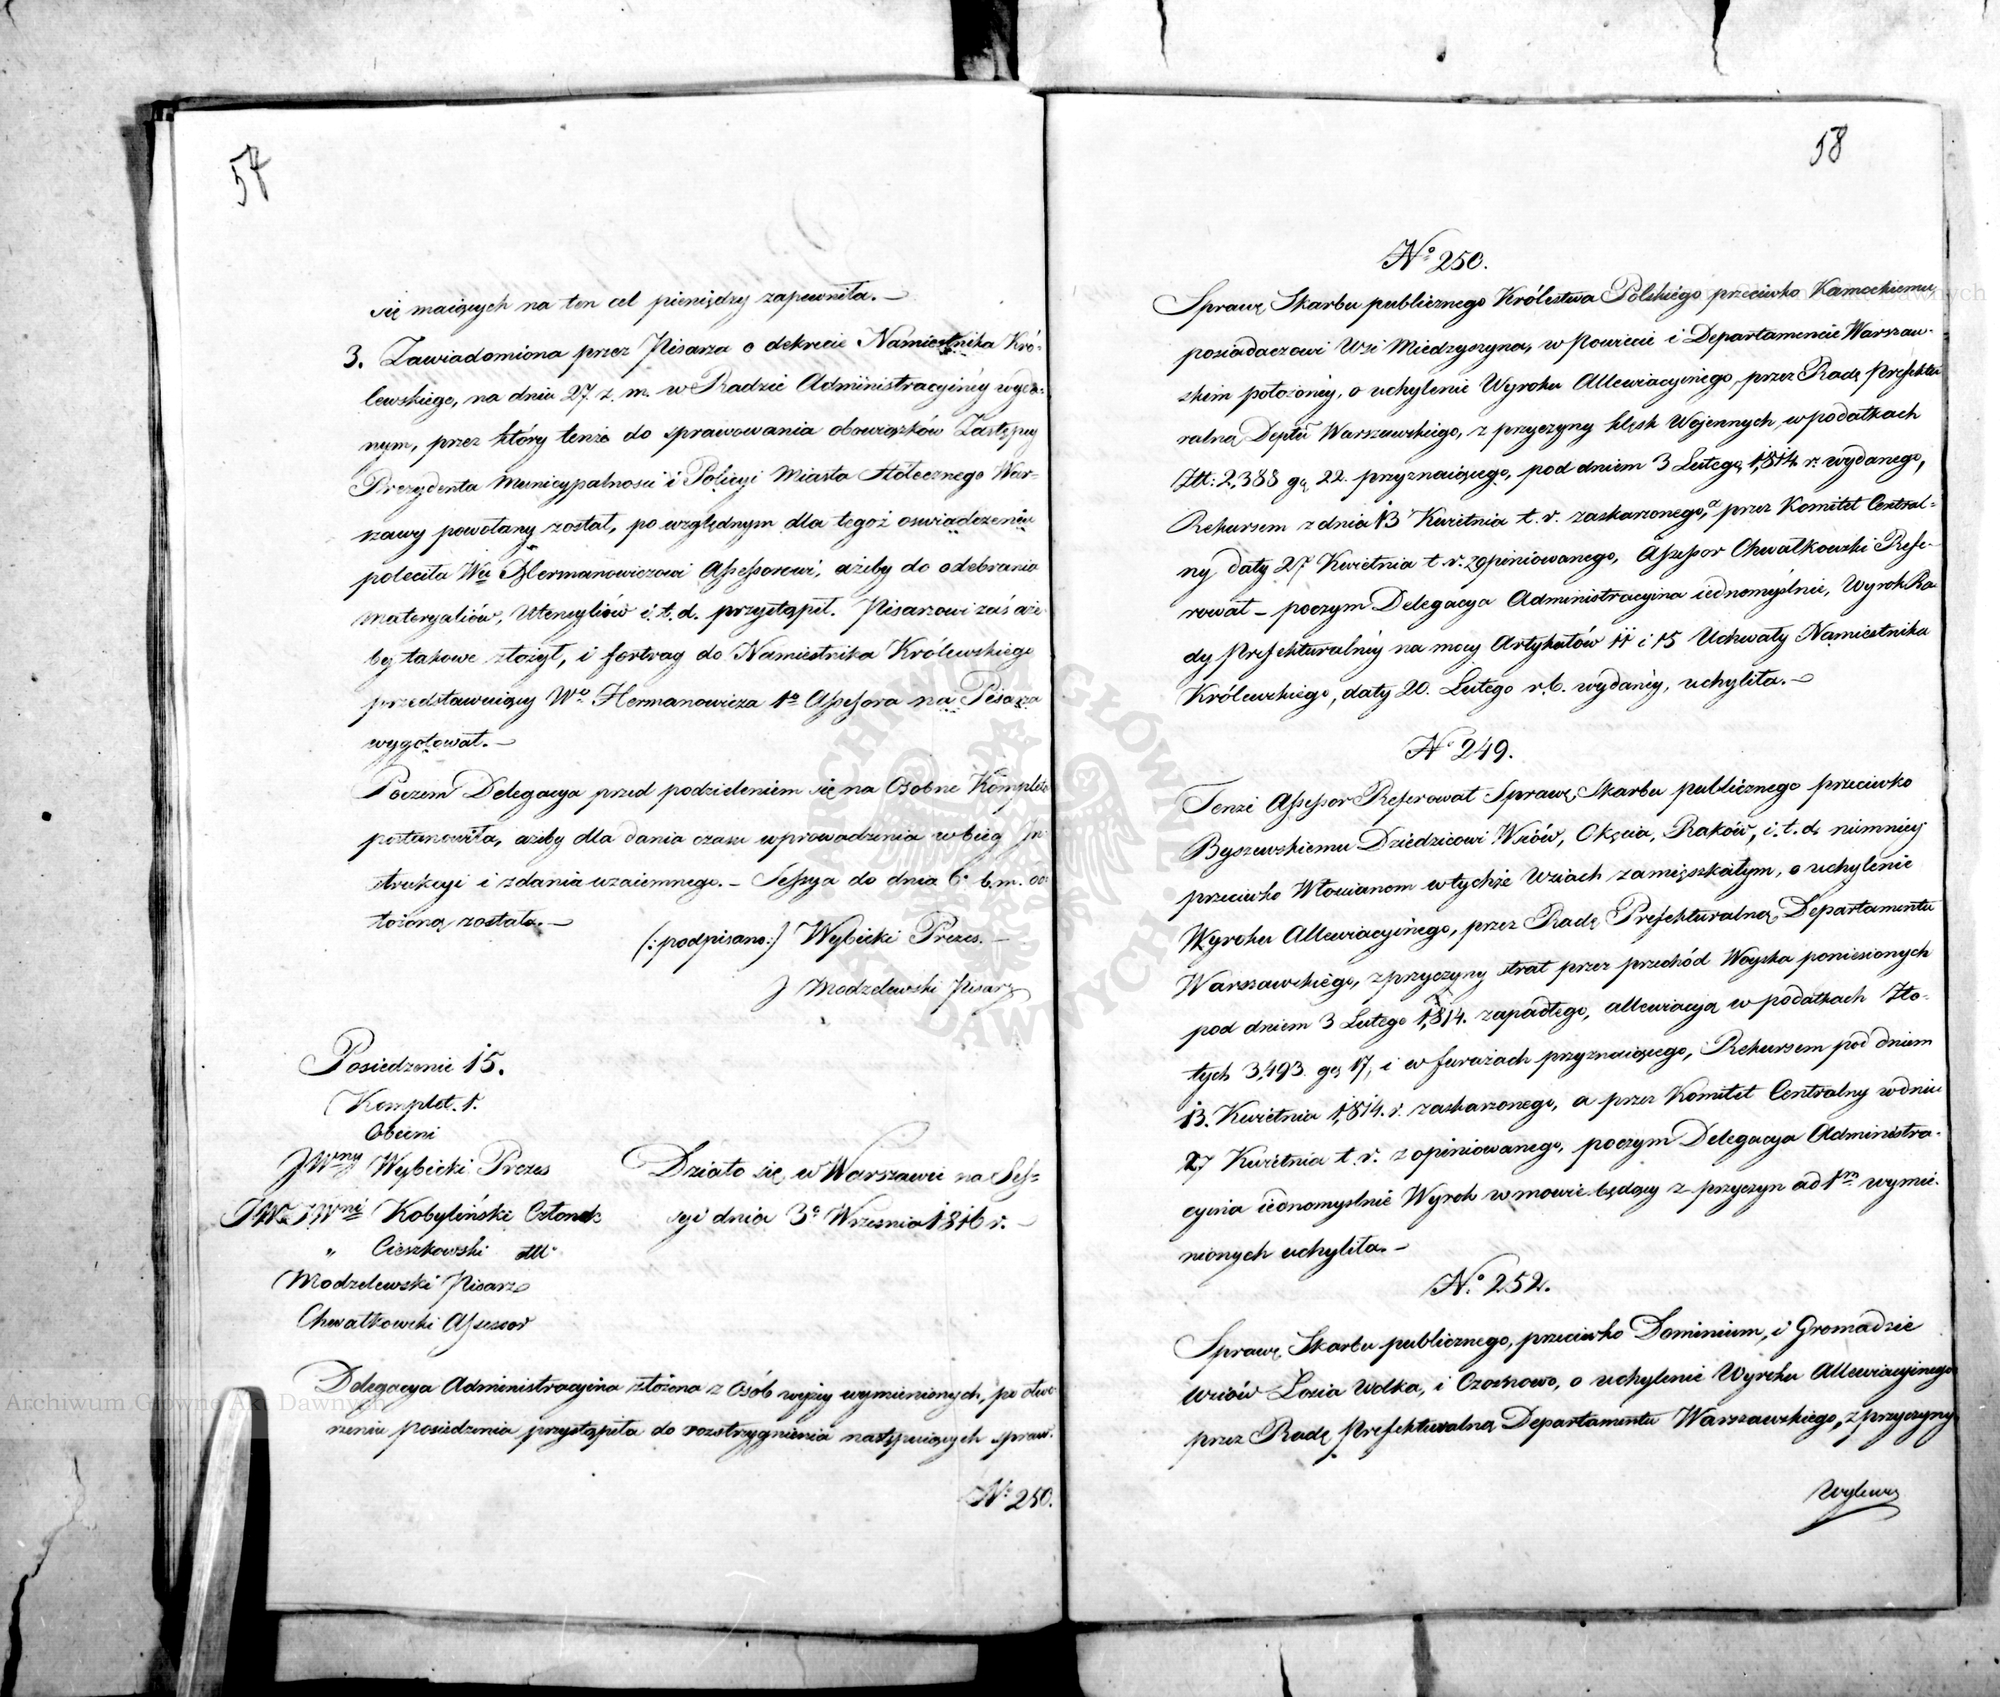 57
się maiących na ten cel pieniędzy zapewniła. —
3. Zawiadomiona przez Pisarza o dekrecie Namiestnika Kró-
lewskiego, na dniu 27 z. m. w Radzie Administracyinéy wyda-
nym, przez który tenże do sprawowania obowiązków Zastępcy
Prezydenta Municypalnosci i Policyi Miasta Stołecznego War-
szawy powołany został, po względnym dla tegoż oswiadczeniu
poleciła Wu Hermanowiczowi Assessorowi, ażeby do odebrania
materyałów, Utensyliów i t. d. przystąpił. Pisarzowi zaś aże
by takowe złożył, i fortrag do Namiestnika Królewskiego
przedstawuiący Wo Hermanowicza 1o Assessora na Pisarza
wygotował. —
Poczem Delegacya przed podzieleniem się na Osobne Komplete
postanowiła, ażeby dla dania czasu wprowadzenia w bieg In
strukcyi i zdania wzaiemnego. — Sessya do dnia 6o b. m. od
łożoną została. —
(: podpisano :) Wybicki Prezes. —
J Modzelewski Pisarz
Posiedzenie 15.
Komplet. 1.
Obecni
JWny Wybicki Prezes
Działo się w Warszawie na Ses-
JWi Wni Kobyliński Członek
syi dnia 3o Wrzesnia 1816 r. —
" Cieszkowski
Modzelewski Pisarz
Chwałkowski Assessor
Delegacya Administracyina złożona z Osób wyżéy wymienionych, po otwo
rzeniu posiedzenia przystąpiła do rozstrzygnienia następuiących spraw.
No 250.
58
No 250.
Sprawę Skarbu publicznego Królestwa Polskiego przeciwko Kamockiemu
posiadaczowi Wsi Miedzyczyna, w Powiecie i Departamencie Warszaw-
skim położonéy, o uchylenie Wyroku Allewiacyinego, przez Radę Prefektu
ralną Deptu Warszawskiego, z przyczyny klęsk Woiennych, w podatkach
Złt: 2,388 gr 22. przyznaiącego, pod dniem 3 Lutego 1,814 r. wydanego,
Rekursem z dnia 13 Kwietnia t. r. zaskarżonego, a przez Komitet Central-
ny daty 27 Kwietnia t. r. zopiniowanego, Assessor Chwałkowski Refe-
rował — poczym Delegacya Administracyina iednomyślnie, Wyrok Ra
dy Prefekturalnéy na mocy Artykułów 11 i 15 Uchwały Namiestnika
Królewskiego, daty 20. Lutego r. b. wydanéy, uchyliła. —
No 249.
Tenże Assessor Referował Sprawę Skarbu publicznego przeciwko
Byszewskiemu Dziedzicowi Wsiów, Okęcia, Raków, i. t. d. niemniéy
przeciwko Włościanom w tychże Wsiach zamieszkałym, o uchylenie
Wyroku Allewiacyinego, przez Radę Prefekturalną Departamentu
Warszawskiego, z przyczyny strat przez przechód Woyska poniesionych
pod dniem 3 Lutego 1,814. zapadłego, allewiacyą w podatkach Zło-
tych 3,493. gr 17, i w furażach przyznaiącego, Rekursem pod dniem
13. Kwietnia 1,814. r. zaskarżonego, a przez Komitet Centralny w dniu
27 Kwietnia t. r. zopiniowanego, poczym Delegacya Administra-
cyina iednomyslnie Wyrok w mowie będący z przyczyn ad 1m wymie-
nionych uchyliła. —
No 252.
Sprawę Skarbu publicznego, przeciwko Dominium, i Gromadzie
Wsiów Łosia Wolka, i Czosnowo, o uchylenie Wyroku Allewiacyinego
przez Radę Prefekturalną Departamentu Warszawskiego, z przyczyny
Wylewu
Archiwum Główne Akt Dawnych
ARCHIWUM GŁÓWNE AKT DAWNYCH